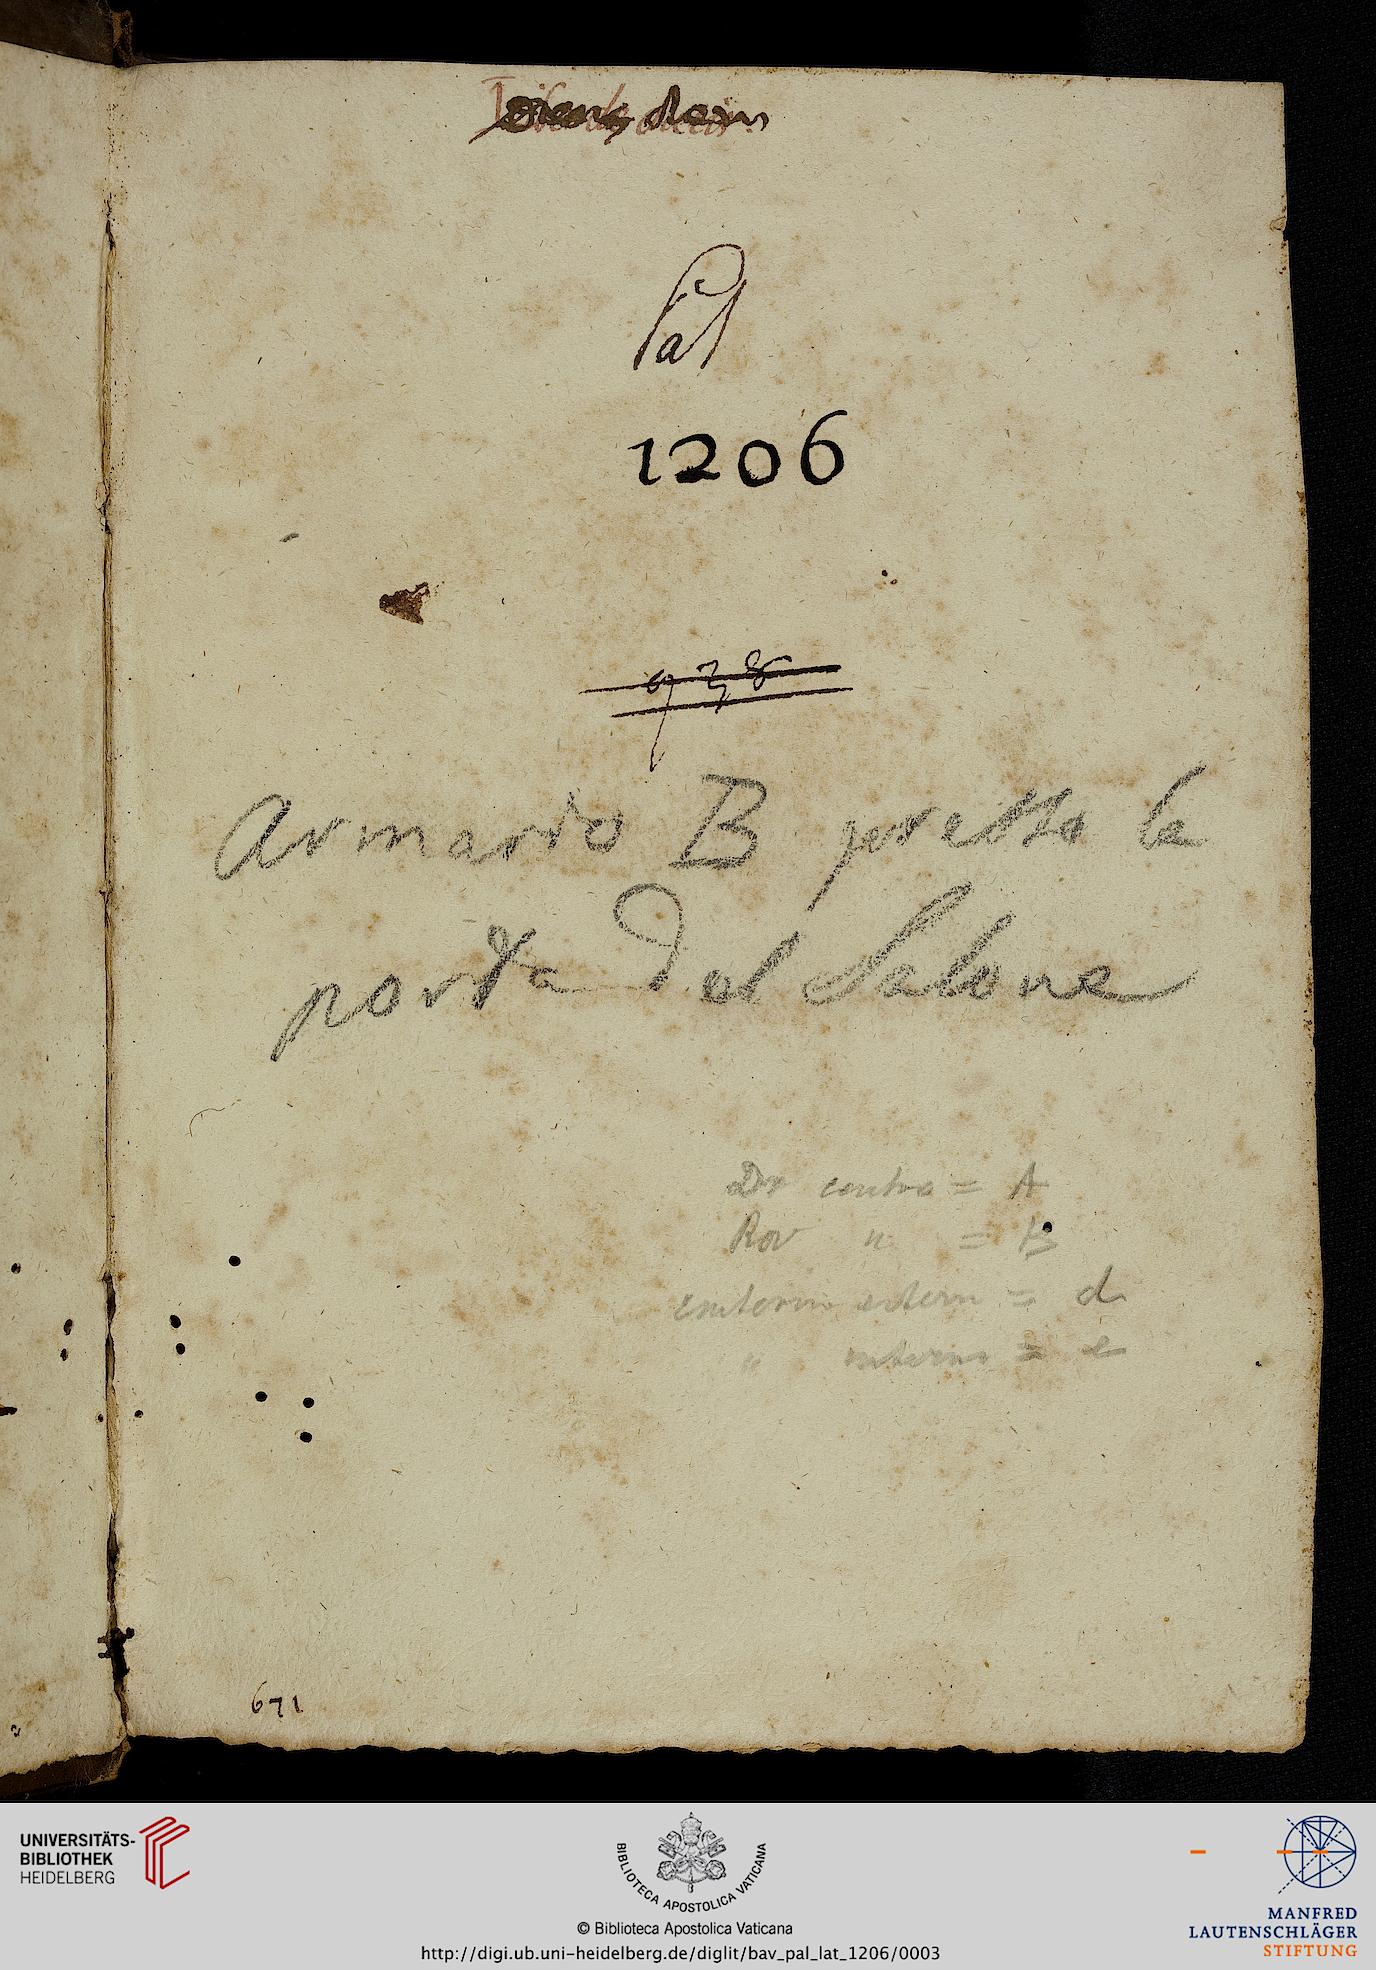 Pal
1206
978
Armario B presso la
porta del Salone
Dr centro = A
Rov " = B
esterno = d
" interno = e
671
UNIVERSITÄTS-
BIBLIOTHEK
HEIDELBERG
BIBLIOTECA APOSTOLICA VATICANA
© Biblioteca Apostolica Vaticana
http://digi.ub.uni-heidelberg.de/diglit/bav_pal_lat_1206/0003
MANFRED
LAUTENSCHLÄGER
STIFTUNG